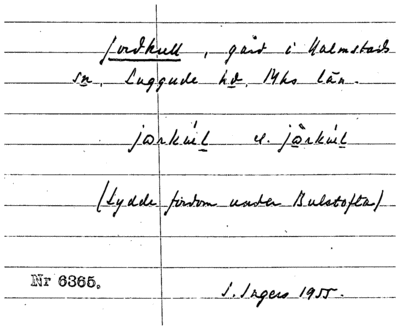 Jordkull, gård i Halmstads
sn, Luggude hd, Mhs län.
jorkúl l. jǫrkúl
(Lydde fordom under Bulstofta)
Nr 6365.
I. Ingers 1955.